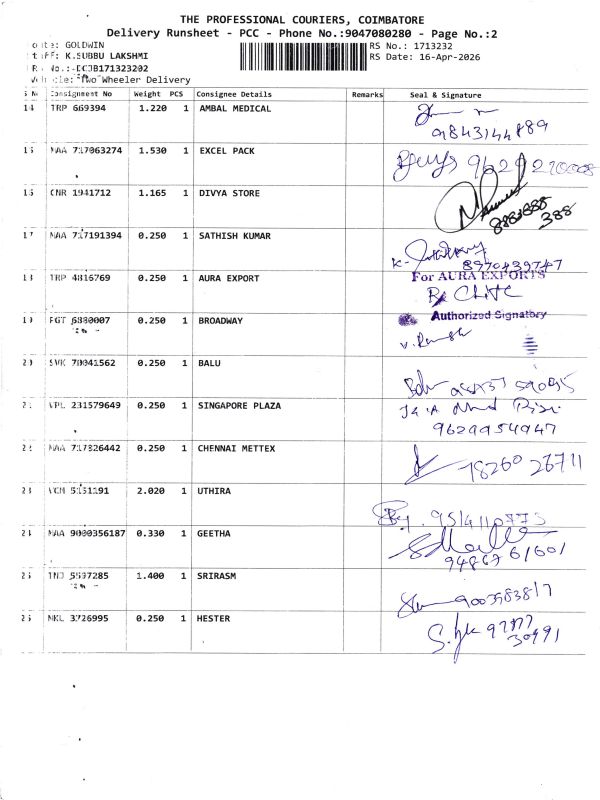 THE PROFESSIONAL COURIERS, COIMBATORE
Delivery Runsheet - PCC - Phone No.:9047080280 - Page No.:2
GOLDWIN RS No.: 1713232
K.SUBBU LAKSHMI RS Date: 16-Apr-2026
Two Wheeler Delivery
Consignment No Weight PCS Consignee Details Remarks Seal & Signature
14 TRP 669394 1.220 1 AMBAL MEDICAL
9843144889
15 MAA 717063274 1.530 1 EXCEL PACK
16 CNR 1941712 1.165 1 DIVYA STORE
17 MAA 717191394 0.250 1 SATHISH KUMAR
8970439747
18 TRP 4816769 0.250 1 AURA EXPORT
For AURA EXPORTS
Authorized Signatory
19 0.250 1 BROADWAY
20 SVK 70041562 0.250 1 BALU
21 VPL 231579649 0.250 1 SINGAPORE PLAZA
9629954947
22 MAA 717826442 0.250 1 CHENNAI METTEX
78260 26711
23 2.020 1 UTHIRA
24 MAA 9000356187 0.330 1 GEETHA
94867 61601
25 1.400 1 SRIRASM
26 NKL 3726995 0.250 1 HESTER